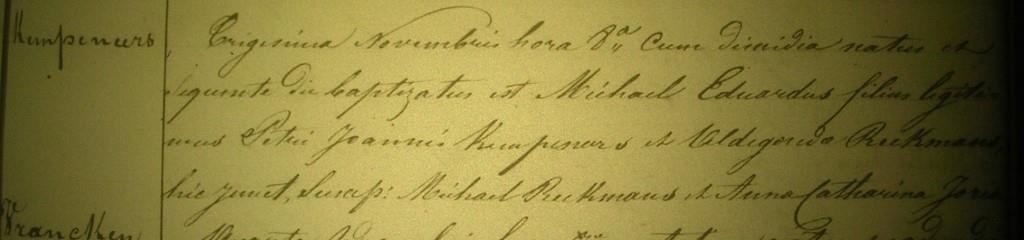 Kempeneers
Trigesima Novembris hora 8ª cum dimidia natus et
sequente die baptizatus est Michael Eduardus filius legiti-
mus Petri Joannis Kempeneers et Aldegonda Reekmans,
hic junct, Suscep: Michael Reekmans et Anna Catharina Joris
Vrancken